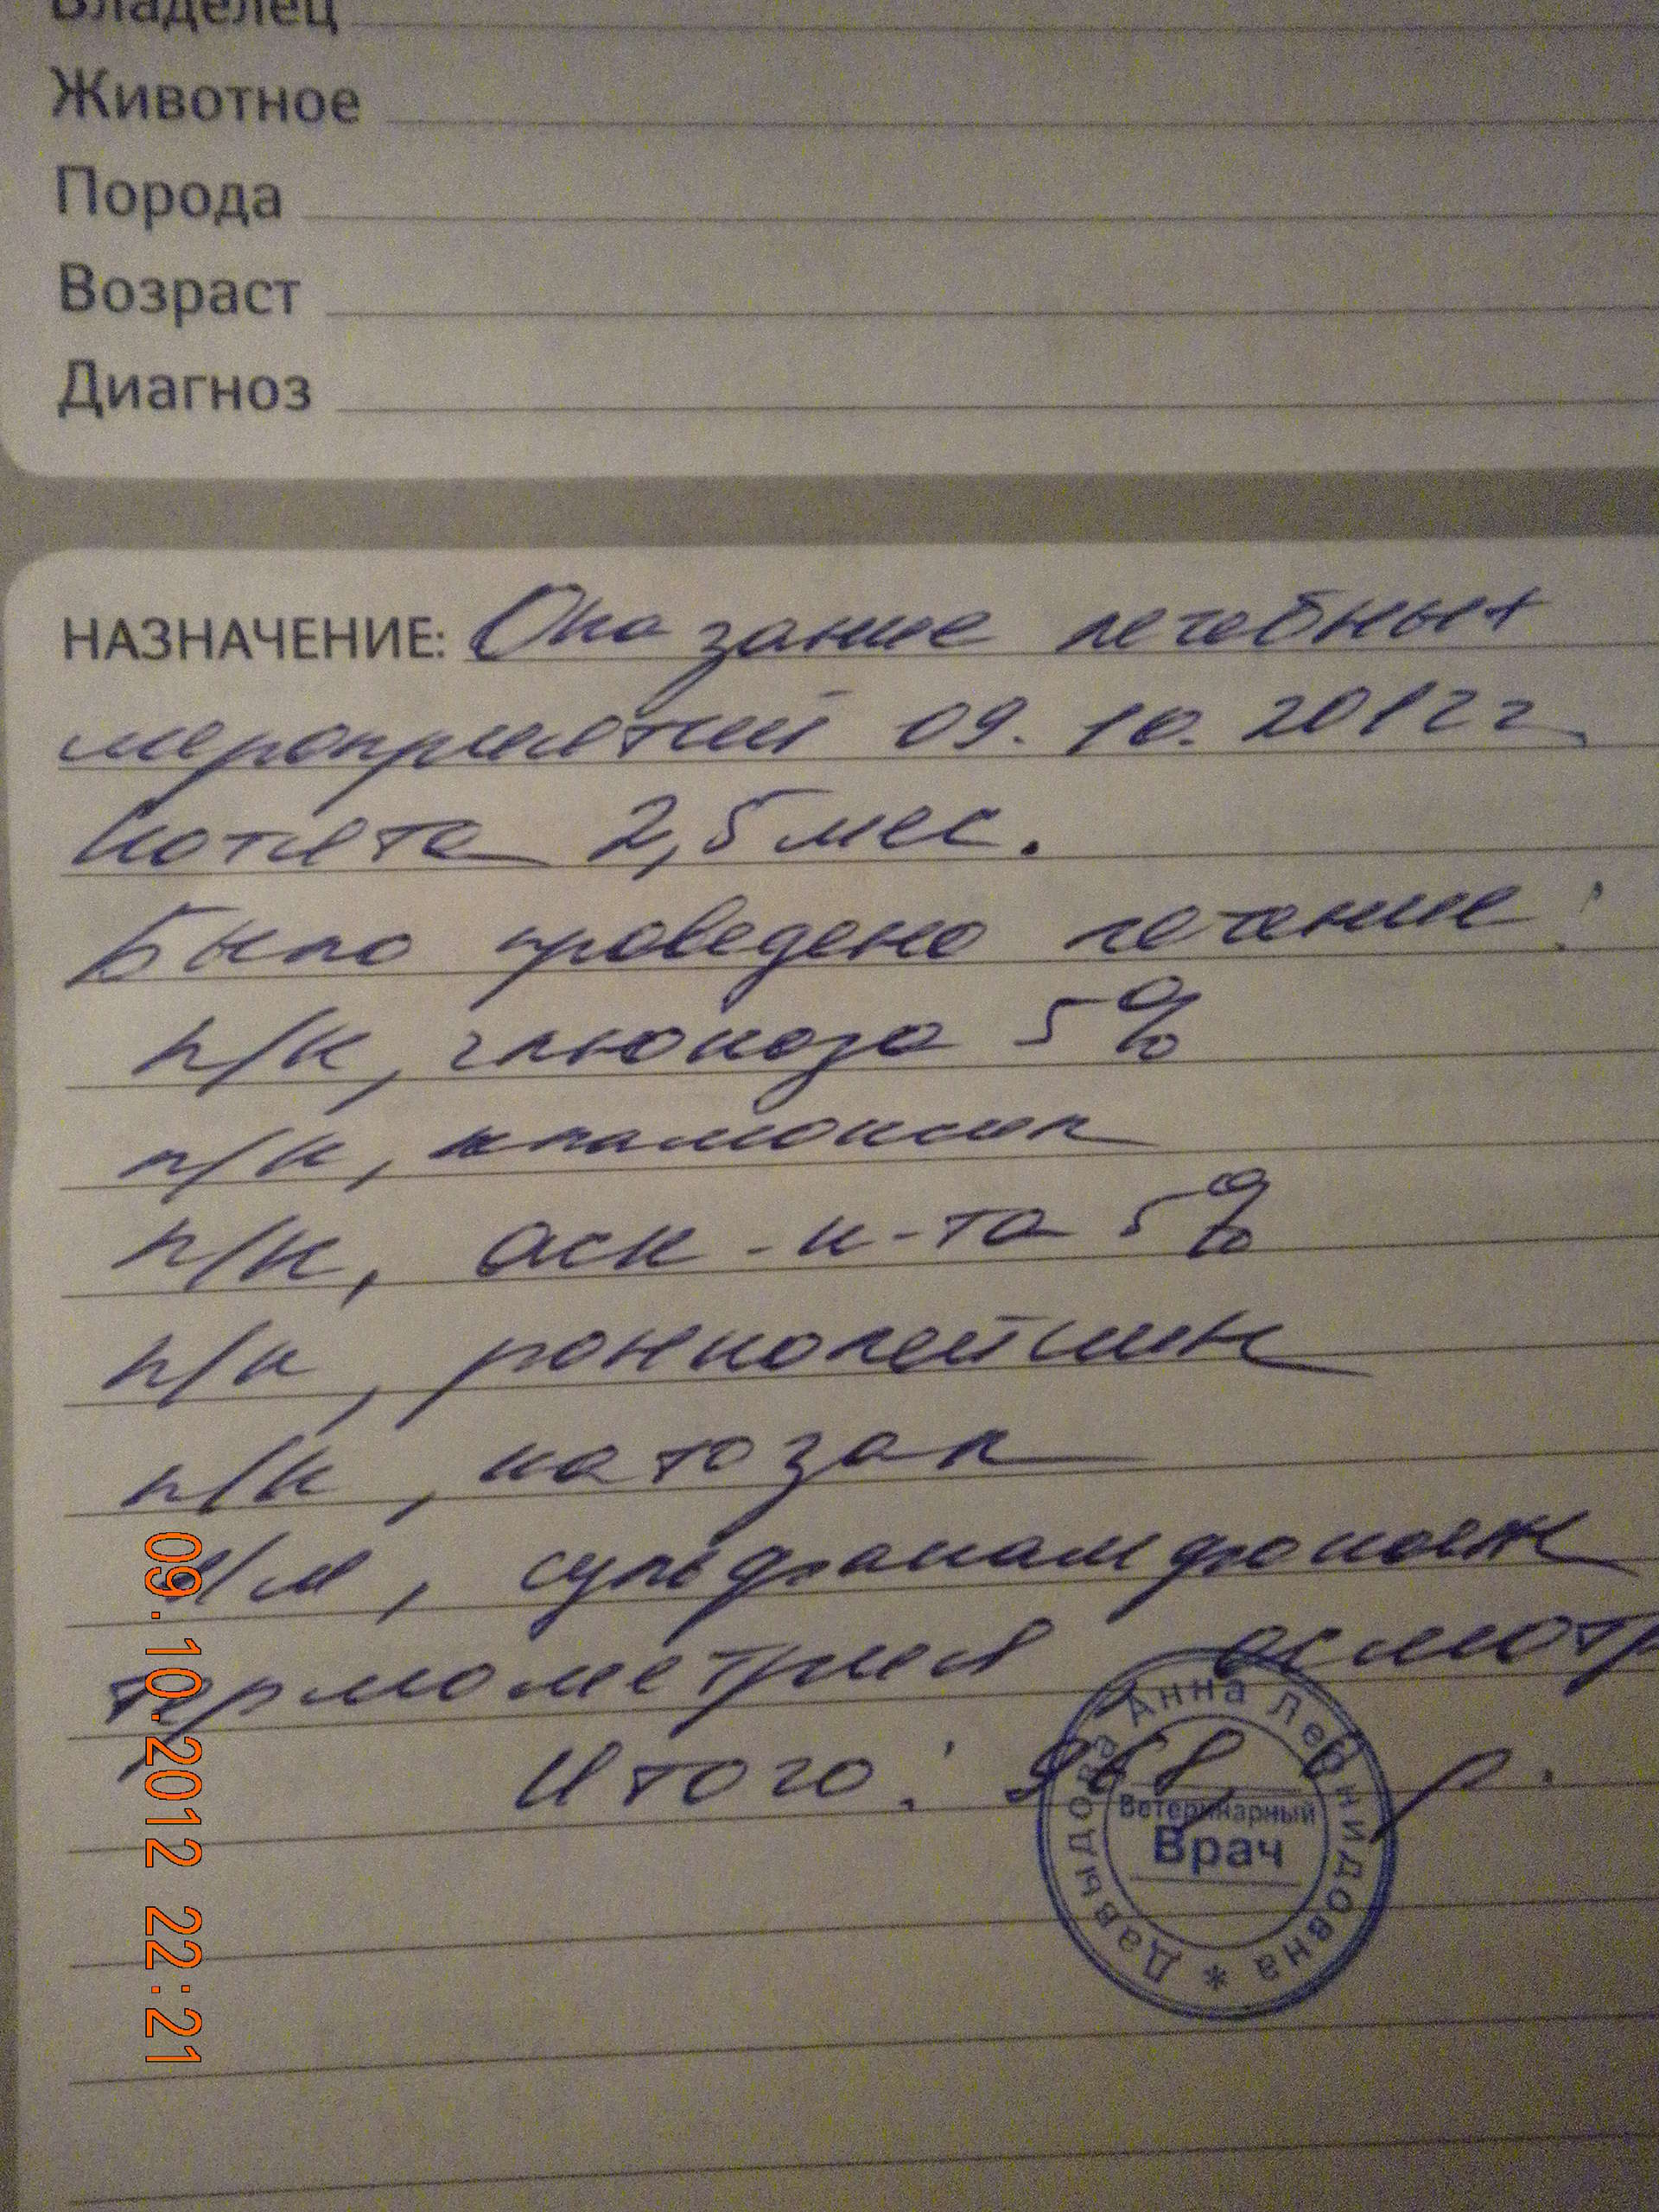 Владелец
Животное
Порода
Возраст
Диагноз
НАЗНАЧЕНИЕ: Оказание лечебных
мероприятий 09.10.2012 г.
Котята 2,5 мес.
Было проведено лечение:
п/к, глюкоза 5%
п/к,
п/к, аск-к-та 5%
п/к, ронколейкин
п/к, катозал
в/м, сульфакамфокаин
термометрия осмотр
Итого: 968, р.
Давыдова Анна Леонидовна *
Ветеринарный
Врач
09.10.2012 22:21